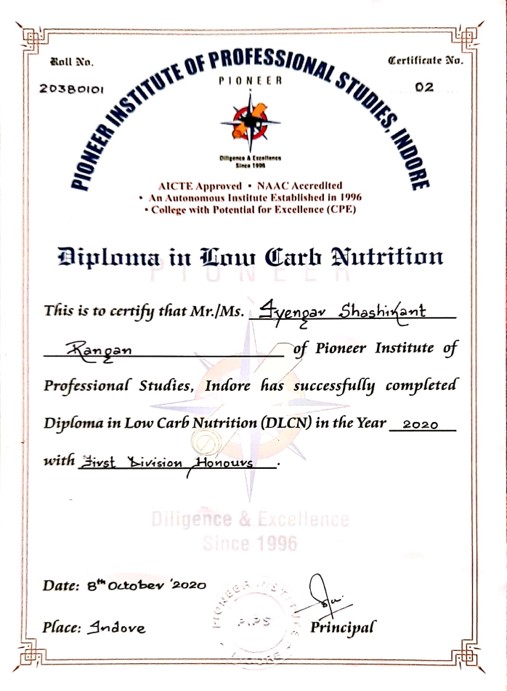 Roll No.
20380101
Certificate No.
02
PIONEER INSTITUTE OF PROFESSIONAL STUDIES, INDORE
PIONEER
Diligence & Excellence
Since 1996
AICTE Approved • NAAC Accredited
• An Autonomous Institute Established in 1996
• College with Potential for Excellence (CPE)
Diploma in Low Carb Nutrition
PIONEER
This is to certify that Mr./Ms. Iyengar Shashikant
Rangan of Pioneer Institute of
Professional Studies, Indore has successfully completed
Diploma in Low Carb Nutrition (DLCN) in the Year 2020
with First Division Honours.
Diligence & Excellence
Since 1996
Date: 8th October '2020
Place: Indore
PIPS
Principal